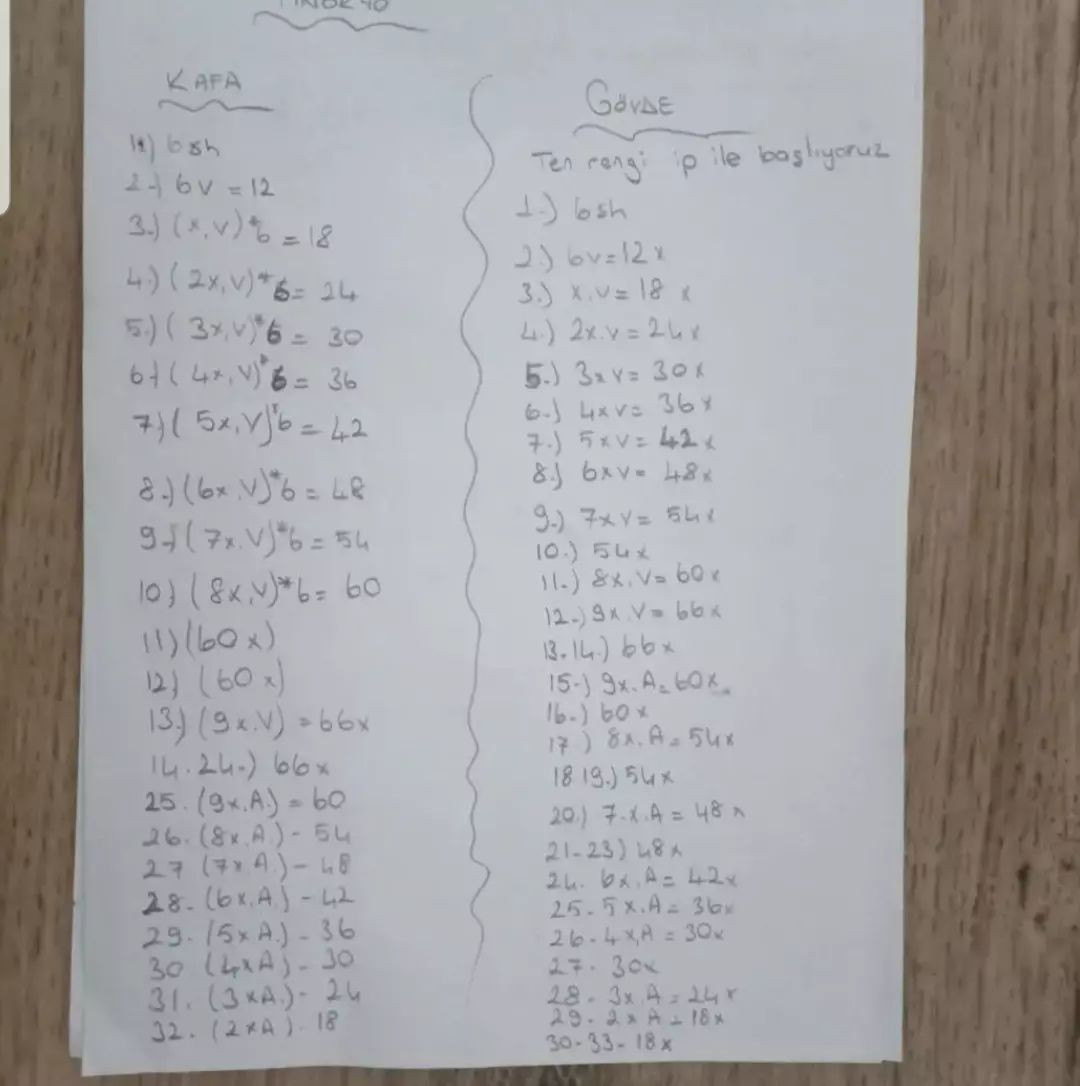 KAFA
1.) 6sh
2.) 6v = 12
3.) (x, v)*6 = 18
4.) (2x, v)*6 = 24
5.) (3x, v)*6 = 30
6) (4x, v)*6 = 36
7) (5x, v)*6 = 42
8.) (6x.V)*6 = 48
9) (7x.V)*6 = 54
10) (8x,v)*6 = 60
11) (60x)
12) (60x)
13.) (9x.V) = 66x
14.24-) 66x
25. (9x.A.) = 60
26. (8x.A.) - 54
27 (7x.A.) - 48
28. (6x.A.) - 42
29. (5x A.) - 36
30 (4xA) - 30
31. (3xA.) - 24
32. (2xA). 18
GÖVDE
Ten rengi ip ile başlıyoruz
1.) 6sh
2.) 6v=12x
3.) x.v= 18 x
4.) 2x.v = 24x
5.) 3xv= 30x
6.) 4xv= 36x
7.) 5xv= 42x
8.) 6xv= 48x
9.) 7xv= 54x
10.) 54x
11.) 8x.V= 60x
12.) 9x.V= 66x
13.14.) 66x
15-) 9x.A= 60x
16-) 60x
17 ) 8x.A = 54x
18 19.) 54x
20.) 7.x.A = 48x
21-23) 48x
24. 6x.A= 42x
25- 5x.A= 36x
26-4x,A = 30x
27- 30x
28- 3x.A = 24x
29- 2x A = 18x
30-33- 18x